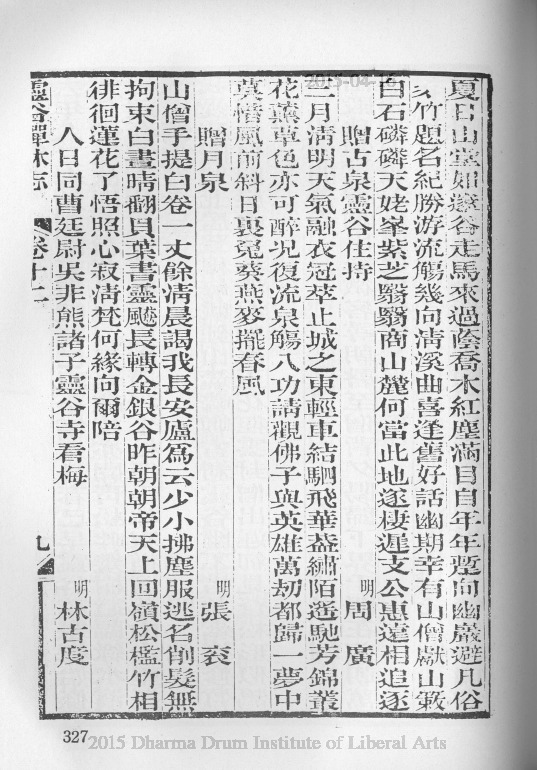 夏日山堂如邃谷走馬來過蔭喬木紅塵滿目自年年暫向幽巖避凡俗
竹題名紀勝游流觴幾向清溪曲喜逢舊好話幽期幸有山僧獻山蔌
白石磷磷天姥峯紫芝翳翳商山麓何當此地逐棲遲支公惠遠相追逐
贈古泉靈谷住持 明 周 廣
三月淸明天氣融衣冠萃止城之東輕車結駟飛華葢繡陌遊馳芳錦叢
花薰草色亦可醉况復流泉觴八功請觀佛子與英雄萬劫都歸一夢中
莫惜風前斜日裏兔葵燕麥擺春風
贈月泉 明 張 袞
山僧手提白卷一丈餘淸晨謁我長安廬爲云少小拂塵服逃名削髮無
拘束白晝晴翻貝葉書靈飈長轉金銀谷昨朝朝帝天上回嶺松檻竹相
徘徊蓮花了悟照心寂淸梵何緣向爾陪
人日同曹廷尉吳非熊諸子靈谷寺看梅 明 林古度
靈谷禪林志 卷十二 九
327
2015 Dharma Drum Institute of Liberal Arts